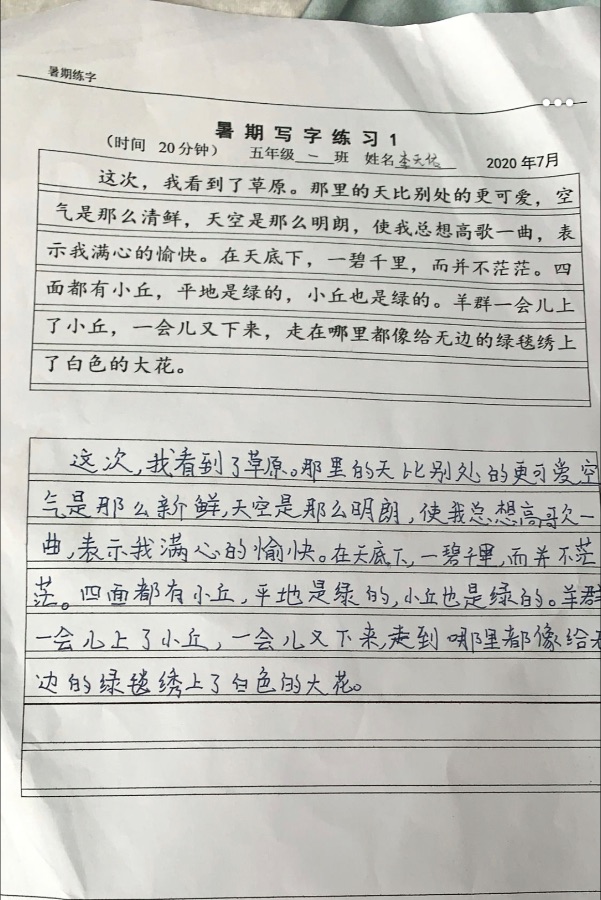 暑期练字
暑期写字练习1
（时间 20分钟） 五年级一班 姓名李天佑 2020年7月
这次，我看到了草原。那里的天比别处的更可爱，空
气是那么清鲜，天空是那么明朗，使我总想高歌一曲，表
示我满心的愉快。在天底下，一碧千里，而并不茫茫。四
面都有小丘，平地是绿的，小丘也是绿的。羊群一会儿上
了小丘，一会儿又下来，走在哪里都像给无边的绿毯绣上
了白色的大花。
这次，我看到了草原。那里的天比别处的更可爱空
气是那么新鲜，天空是那么明朗，使我总想高歌一
曲，表示我满心的愉快。在天底下，一碧千里，而并不茫
茫。四面都有小丘，平地是绿的，小丘也是绿的。羊群
一会儿上了小丘，一会儿又下来，走到哪里都像给无
边的绿毯绣上了白色的大花。